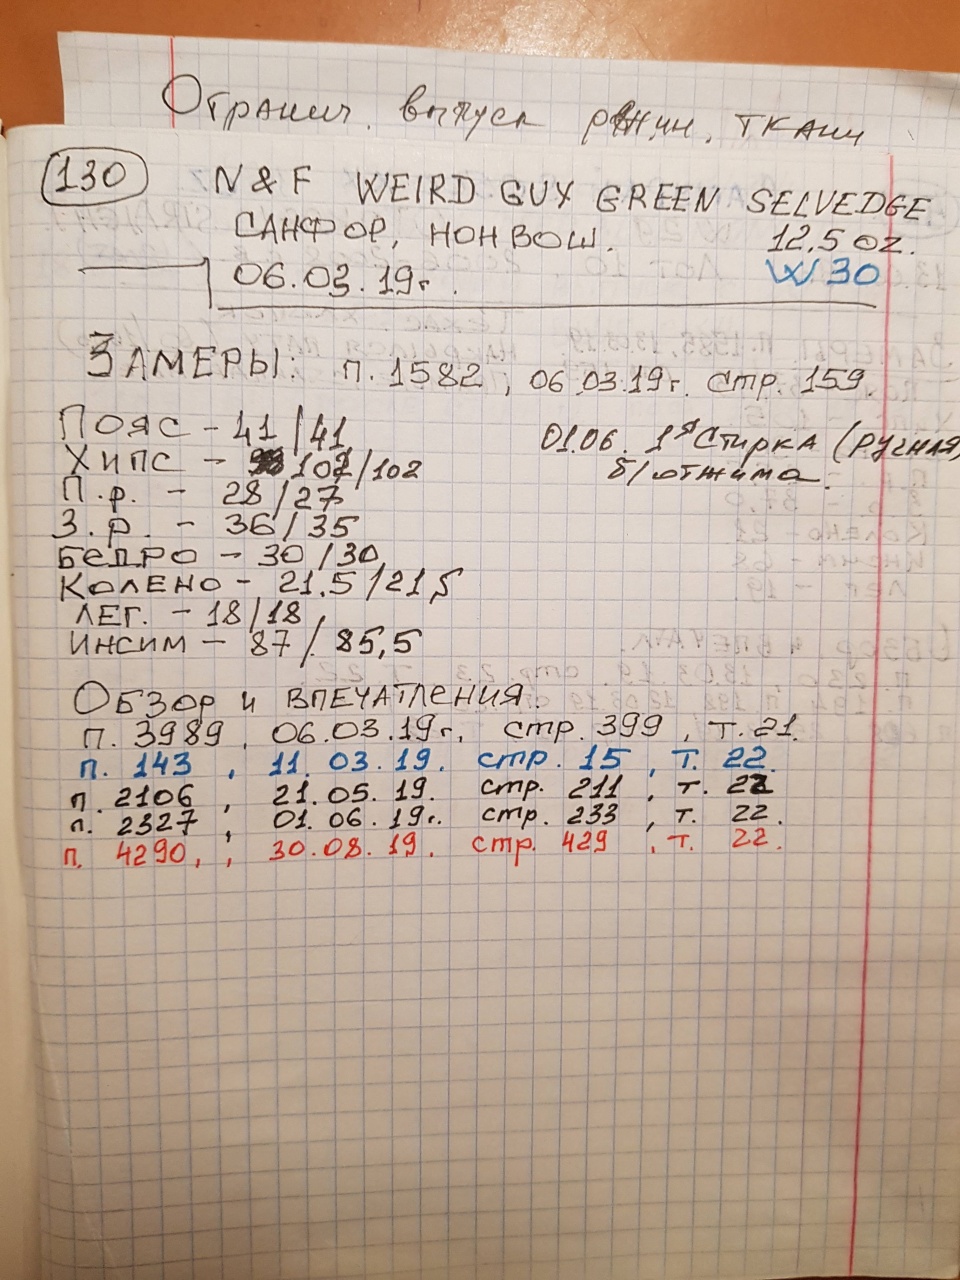 Огранич. выпуск джин. ткани
130 N & F WEIRD GUY GREEN SELVEDGE
САНФОР, НОН ВОШ. 12.5 oz.
06.03.19г. W 30
ЗАМЕРЫ: п. 1582, 06.03.19г. стр. 159.
ПОЯС – 41/41
01.06. 1я Стирка (Ручная)
ХИПС – 102/102
б/отжима.
П.р. – 28/27
З.р. – 36/35
БЕДРО – 30/30
КОЛЕНО – 21.5/21,5
ЛЕГ. – 18/18
ИНСИМ – 87/85,5
ОБЗОР И ВПЕЧАТЛЕНИЯ.
П. 3989, 06.03.19г, стр. 399, т. 21.
п. 143, 11.03.19. стр. 15, т. 22.
п. 2106, 21.05.19. стр. 211, т. 22
п. 2327, 01.06.19г. стр. 233, т. 22.
п. 4290,, 30.08.19. стр. 429, т. 22.